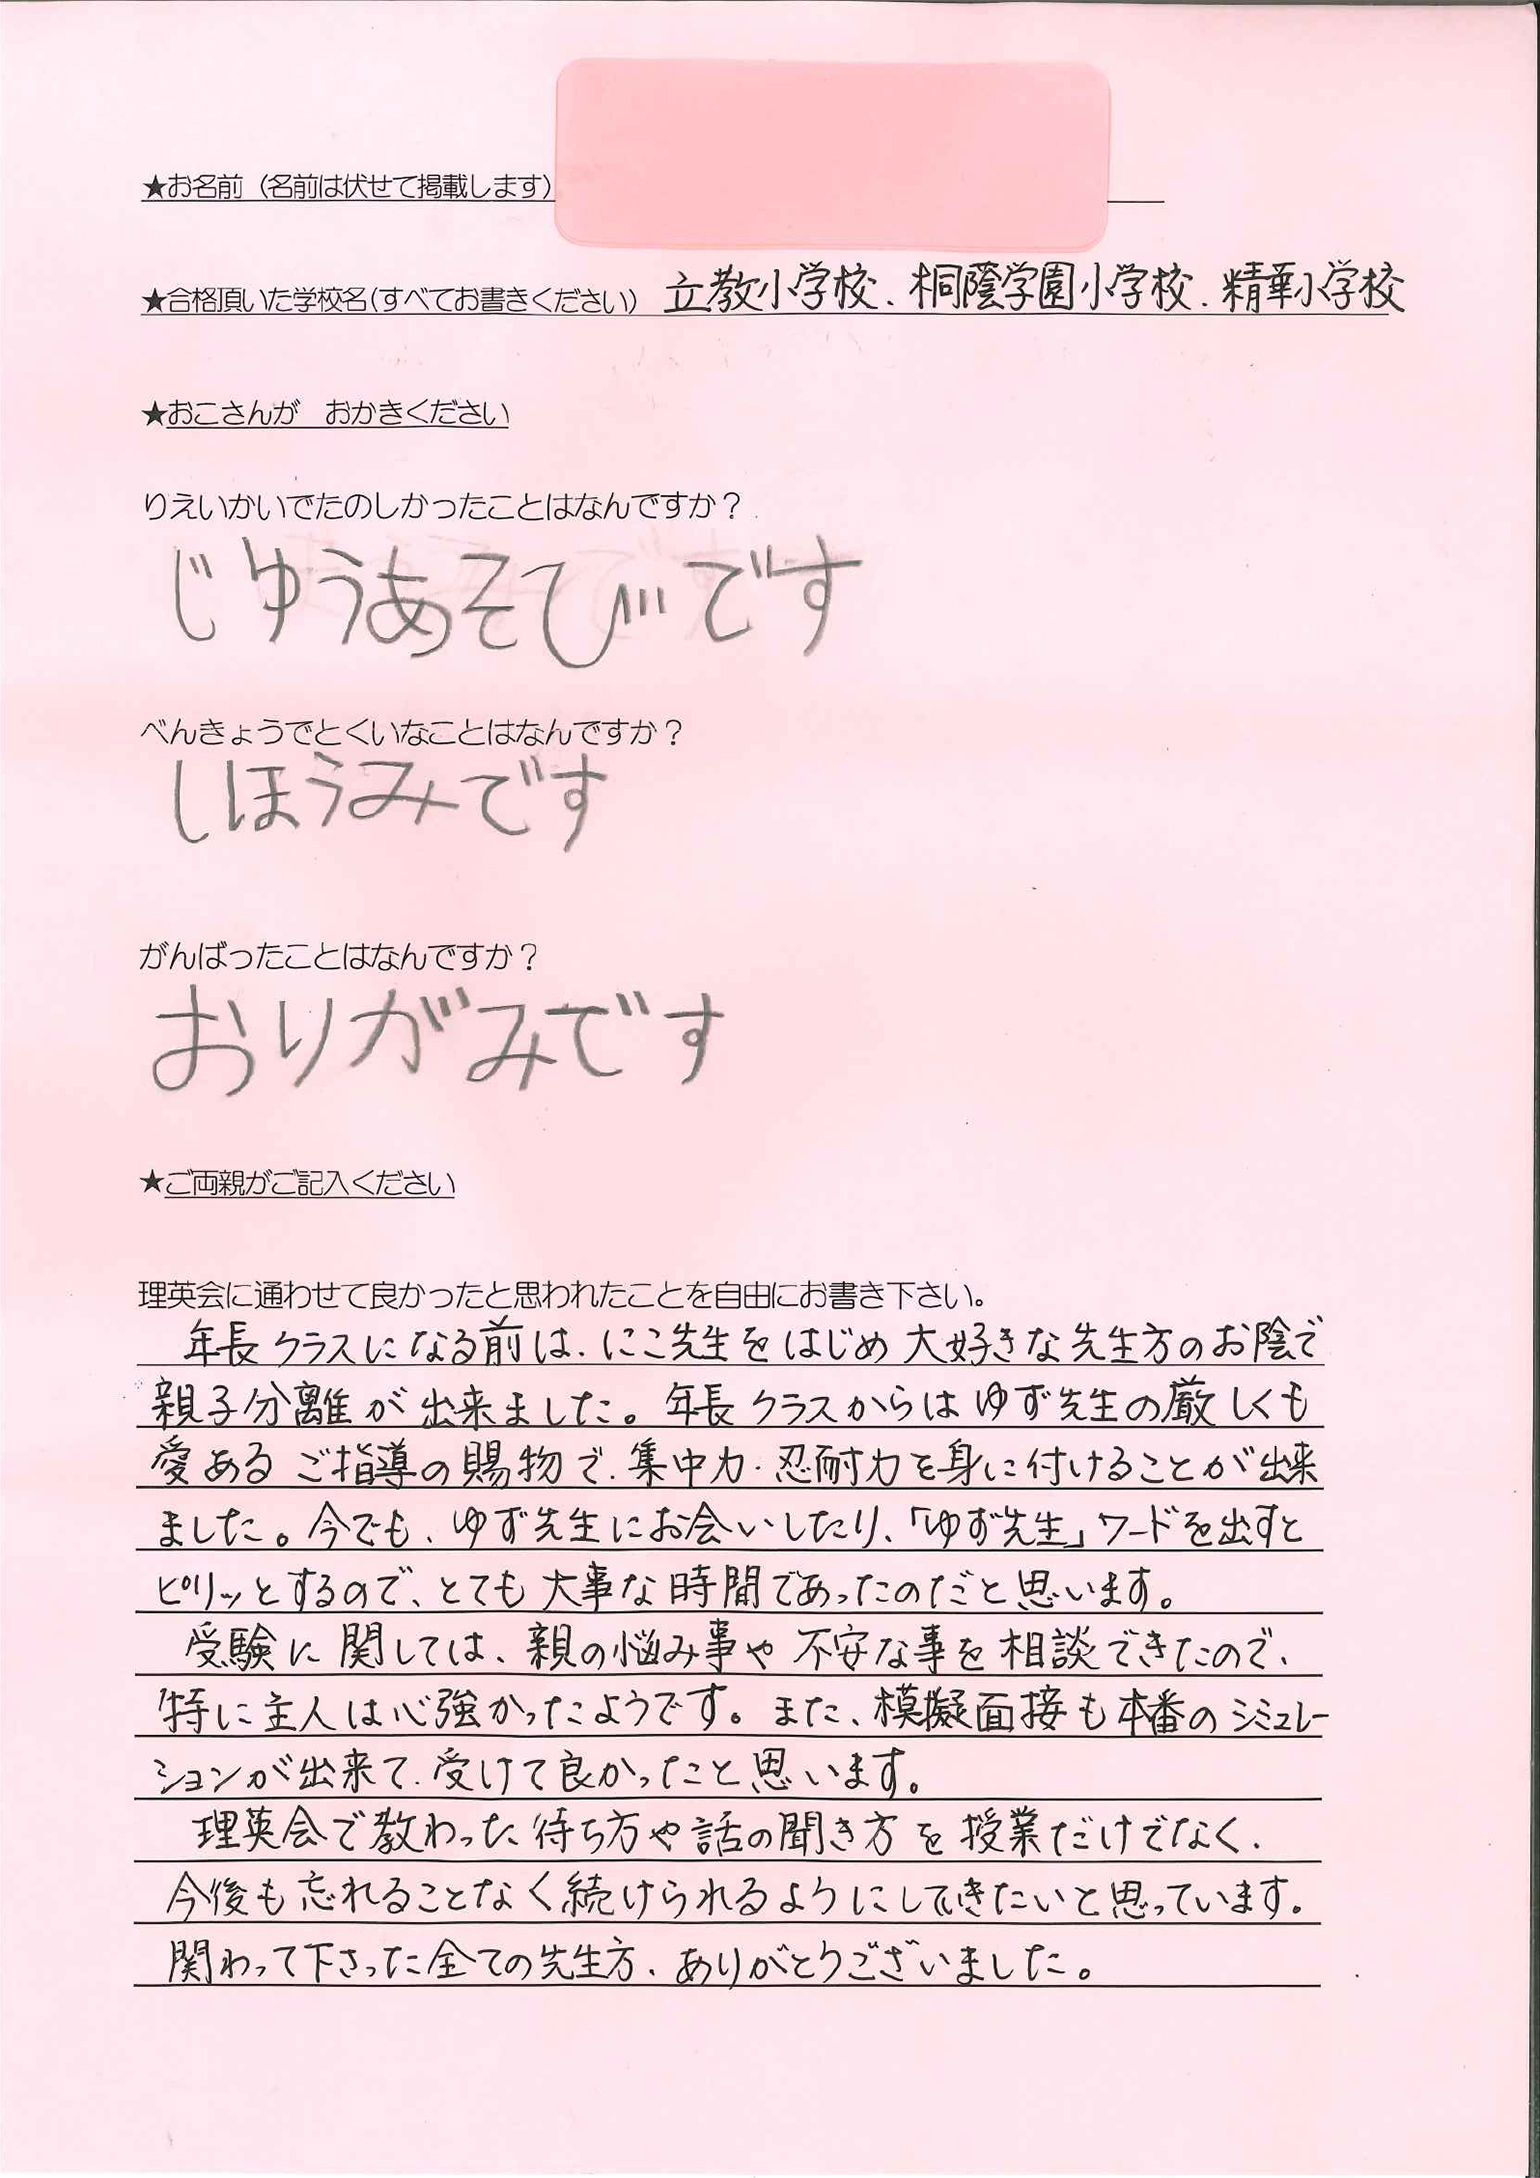 ★お名前（名前は伏せて掲載します）
★合格頂いた学校名（すべてお書きください） 立教小学校、桐蔭学園小学校、精華小学校
★おこさんが　おかきください
りえいかいでたのしかったことはなんですか？
じゆうあそびです
べんきょうでとくいなことはなんですか？
しほうみです
がんばったことはなんですか？
おりがみです
★ご両親がご記入ください
理英会に通わせて良かったと思われたことを自由にお書き下さい。
年長クラスになる前は、にこ先生をはじめ大好きな先生方のお陰で
親子分離が出来ました。年長クラスからはゆず先生の厳しくも
愛あるご指導の賜物で、集中力・忍耐力を身に付けることが出来
ました。今でも、ゆず先生にお会いしたり、「ゆず先生」ワードを出すと
ピリッとするので、とても大事な時間であったのだと思います。
受験に関しては、親の悩み事や不安な事を相談できたので、
特に主人は心強かったようです。また、模擬面接も本番のシミュレー
ションが出来て、受けて良かったと思います。
理英会で教わった待ち方や話の聞き方を授業だけでなく、
今後も忘れることなく続けられるようにしていきたいと思っています。
関わって下さった全ての先生方、ありがとうございました。